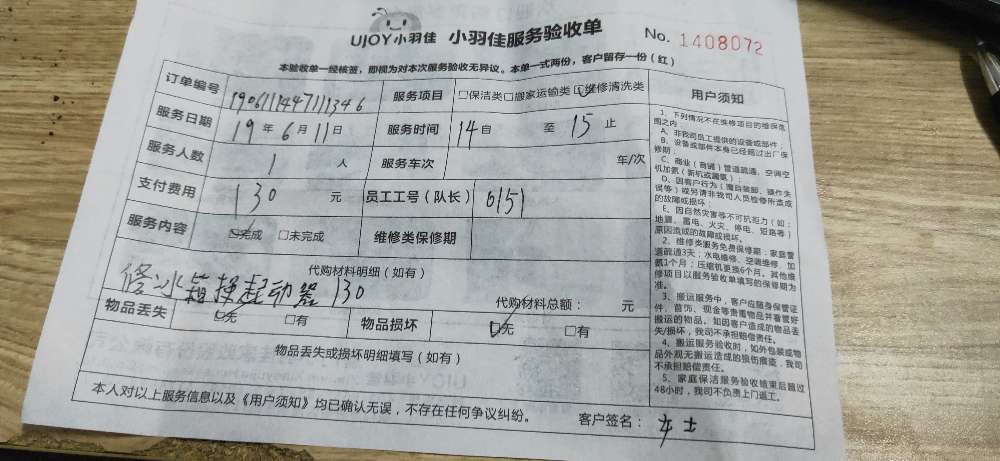 UJOY小羽佳 小羽佳服务验收单 No. 1408072
本验收单一经核签，即视为对本次服务验收无异议。本单一式两份，客户留存一份（红）
订单编号 190611144711346 服务项目 □保洁类 □搬家运输类 ☑维修清洗类
服务日期 19 年 6 月 11 日 服务时间 14 自 至 15 止
服务人数 1 人 服务车次 车/次
支付费用 130 元 员工工号（队长） 6151
服务内容 ☑完成 □未完成 维修类保修期
代购材料明细（如有）
修冰箱换起动器 130
代购材料总额： 元
物品丢失 ☑无 □有 物品损坏 ☑无 □有
物品丢失或损坏明细填写（如有）
本人对以上服务信息以及《用户须知》均已确认无误，不存在任何争议纠纷。 客户签名： 士
用户须知
1、下列情况不在维修项目的维保范
围之内：
A、非我司员工提供的设备或部件；
B、设备或部件本身已经超过出厂保
修期；
C、商业（商铺）管道疏通，空调空
机加氟（新机或漏氟）；
D、因客户行为（擅自装卸、操作失
误等）或另请非我司人员检修所造成
的故障或损坏；
E、因自然灾害等不可抗拒力（如：
地震、雷电、火灾、停电、短路等）
原因造成的故障或损坏。
2、维修类服务免费保修期：家庭管
道疏通3天；水电维修、空调维修、加
氟1个月；压缩机更换6个月。其他维
修项目以服务验收单填写的保修期为
准。
3、搬运服务中，客户应随身保管证
件、首饰、现金等贵重物品并看管好
搬运的物品。如因客户造成的物品丢
失/损坏，我司不承担赔偿责任。
4、搬运服务验收时，如外包装或物
品外观无搬运造成的损伤痕迹，我司
不承担赔偿责任。
5、家庭保洁服务验收结束后超过
48小时，我司不负责上门返工。